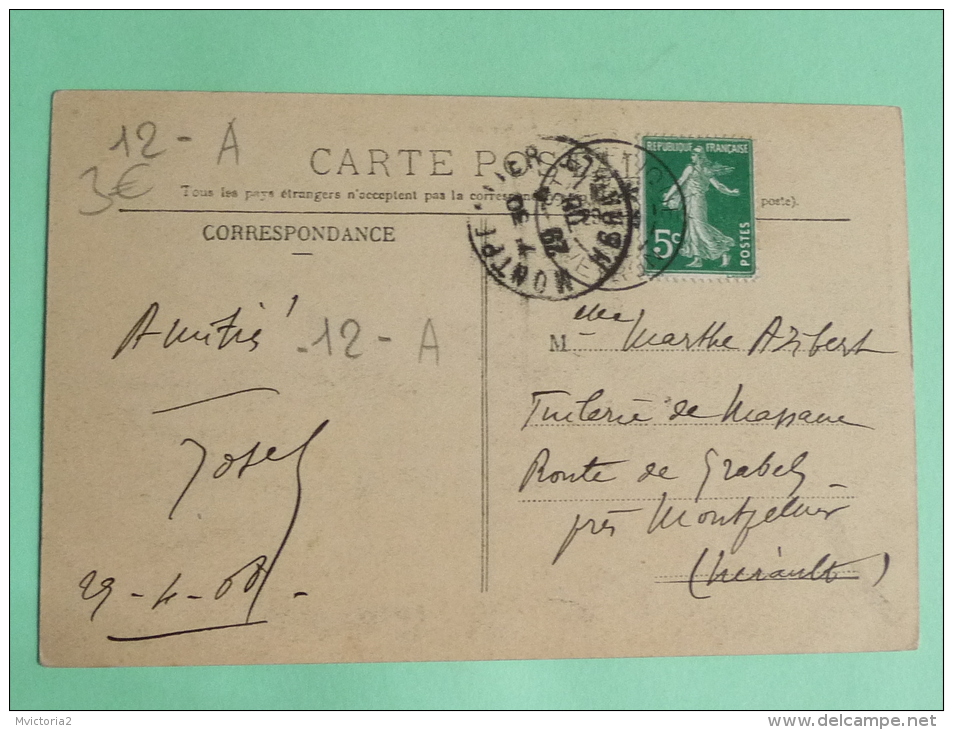 12 - A
3€
CARTE POS
Tous les pays étrangers n'acceptent pas la corresp poste).
CORRESPONDANCE
MONTP IER
HERAULT
REPUBLIQUE FRANÇAISE
5c
POSTES
Amitié
12 - A
Josef
29 - 4 - 08 -
M elle Marthe Azibert
Tuilerie de Massane
Route de Grabels
près Montpellier
(Hérault)
Mvictoria2
www.delcampe.net